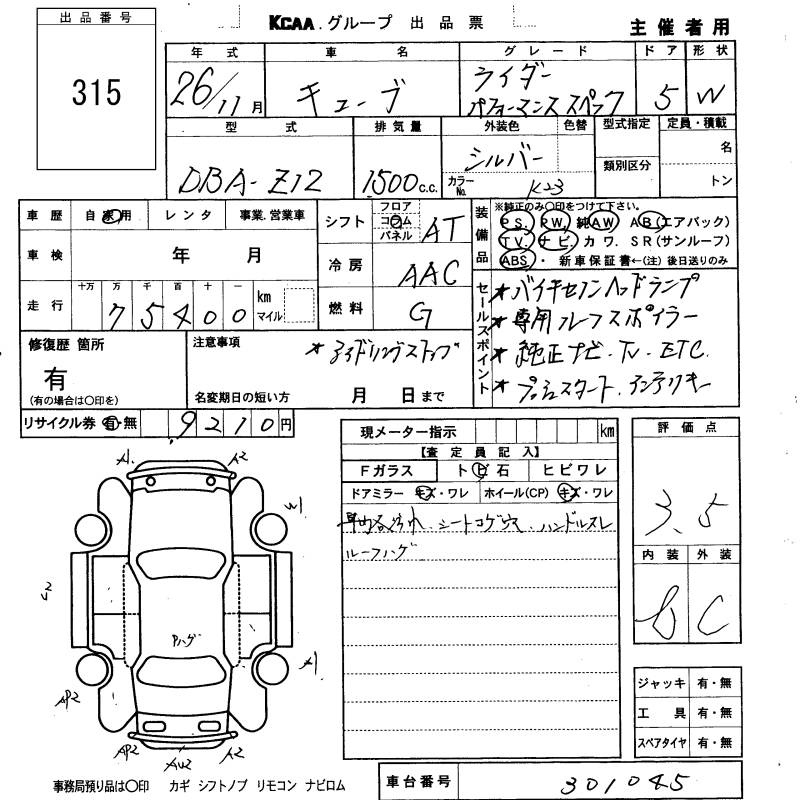 出品番号
315
KCAA.グループ 出品票
主催者用
年式 車名 グレード ドア 形状
26/11月 キューブ ライダー
パフォーマンススペック 5 W
型式 排気量 外装色 色替 型式指定 定員・積載
名
DBA-Z12 1500c.c. シルバー
カラーNo. K-23 類別区分
トン
車歴 自家用 レンタ 事業.営業車
シフト フロア コラム パネル AT
車検 年 月
冷房 AAC
走行 十万 万 千 百 十 一 km マイル
75400
燃料 G
装備品
※純正のみ〇印をつけて下さい。
PS. PW. 純AW AB(エアバック)
TV. ナビ. カワ. SR(サンルーフ)
ABS. ・ 新車保証書←(注)後日送りのみ
セールスポイント
*バイキセノンヘッドランプ
*専用ルーフスポイラー
*純正ナビ・TV・ETC.
*プッシュスタート.インテリキー
修復歴 箇所
有
(有の場合は〇印を)
注意事項
*アイドリングストップ
名変期日の短い方 月 日まで
リサイクル券 有・無 9210円
現メーター指示 km
【査定員記入】
Fガラス トビ石 ヒビワレ
ドアミラー キズ・ワレ ホイール(CP) キズ・ワレ
シートコゲウス.ハンドルスレ
ルーフハゲ
評価点
3.5
内装 外装
b C
A1 A2
W1
U2
Pハゲ
A1
AP2
AP2 AU2 A2
ジャッキ 有・無
工具 有・無
スペアタイヤ 有・無
事務局預り品は〇印 カギ シフトノブ リモコン ナビロム
車台番号 301045